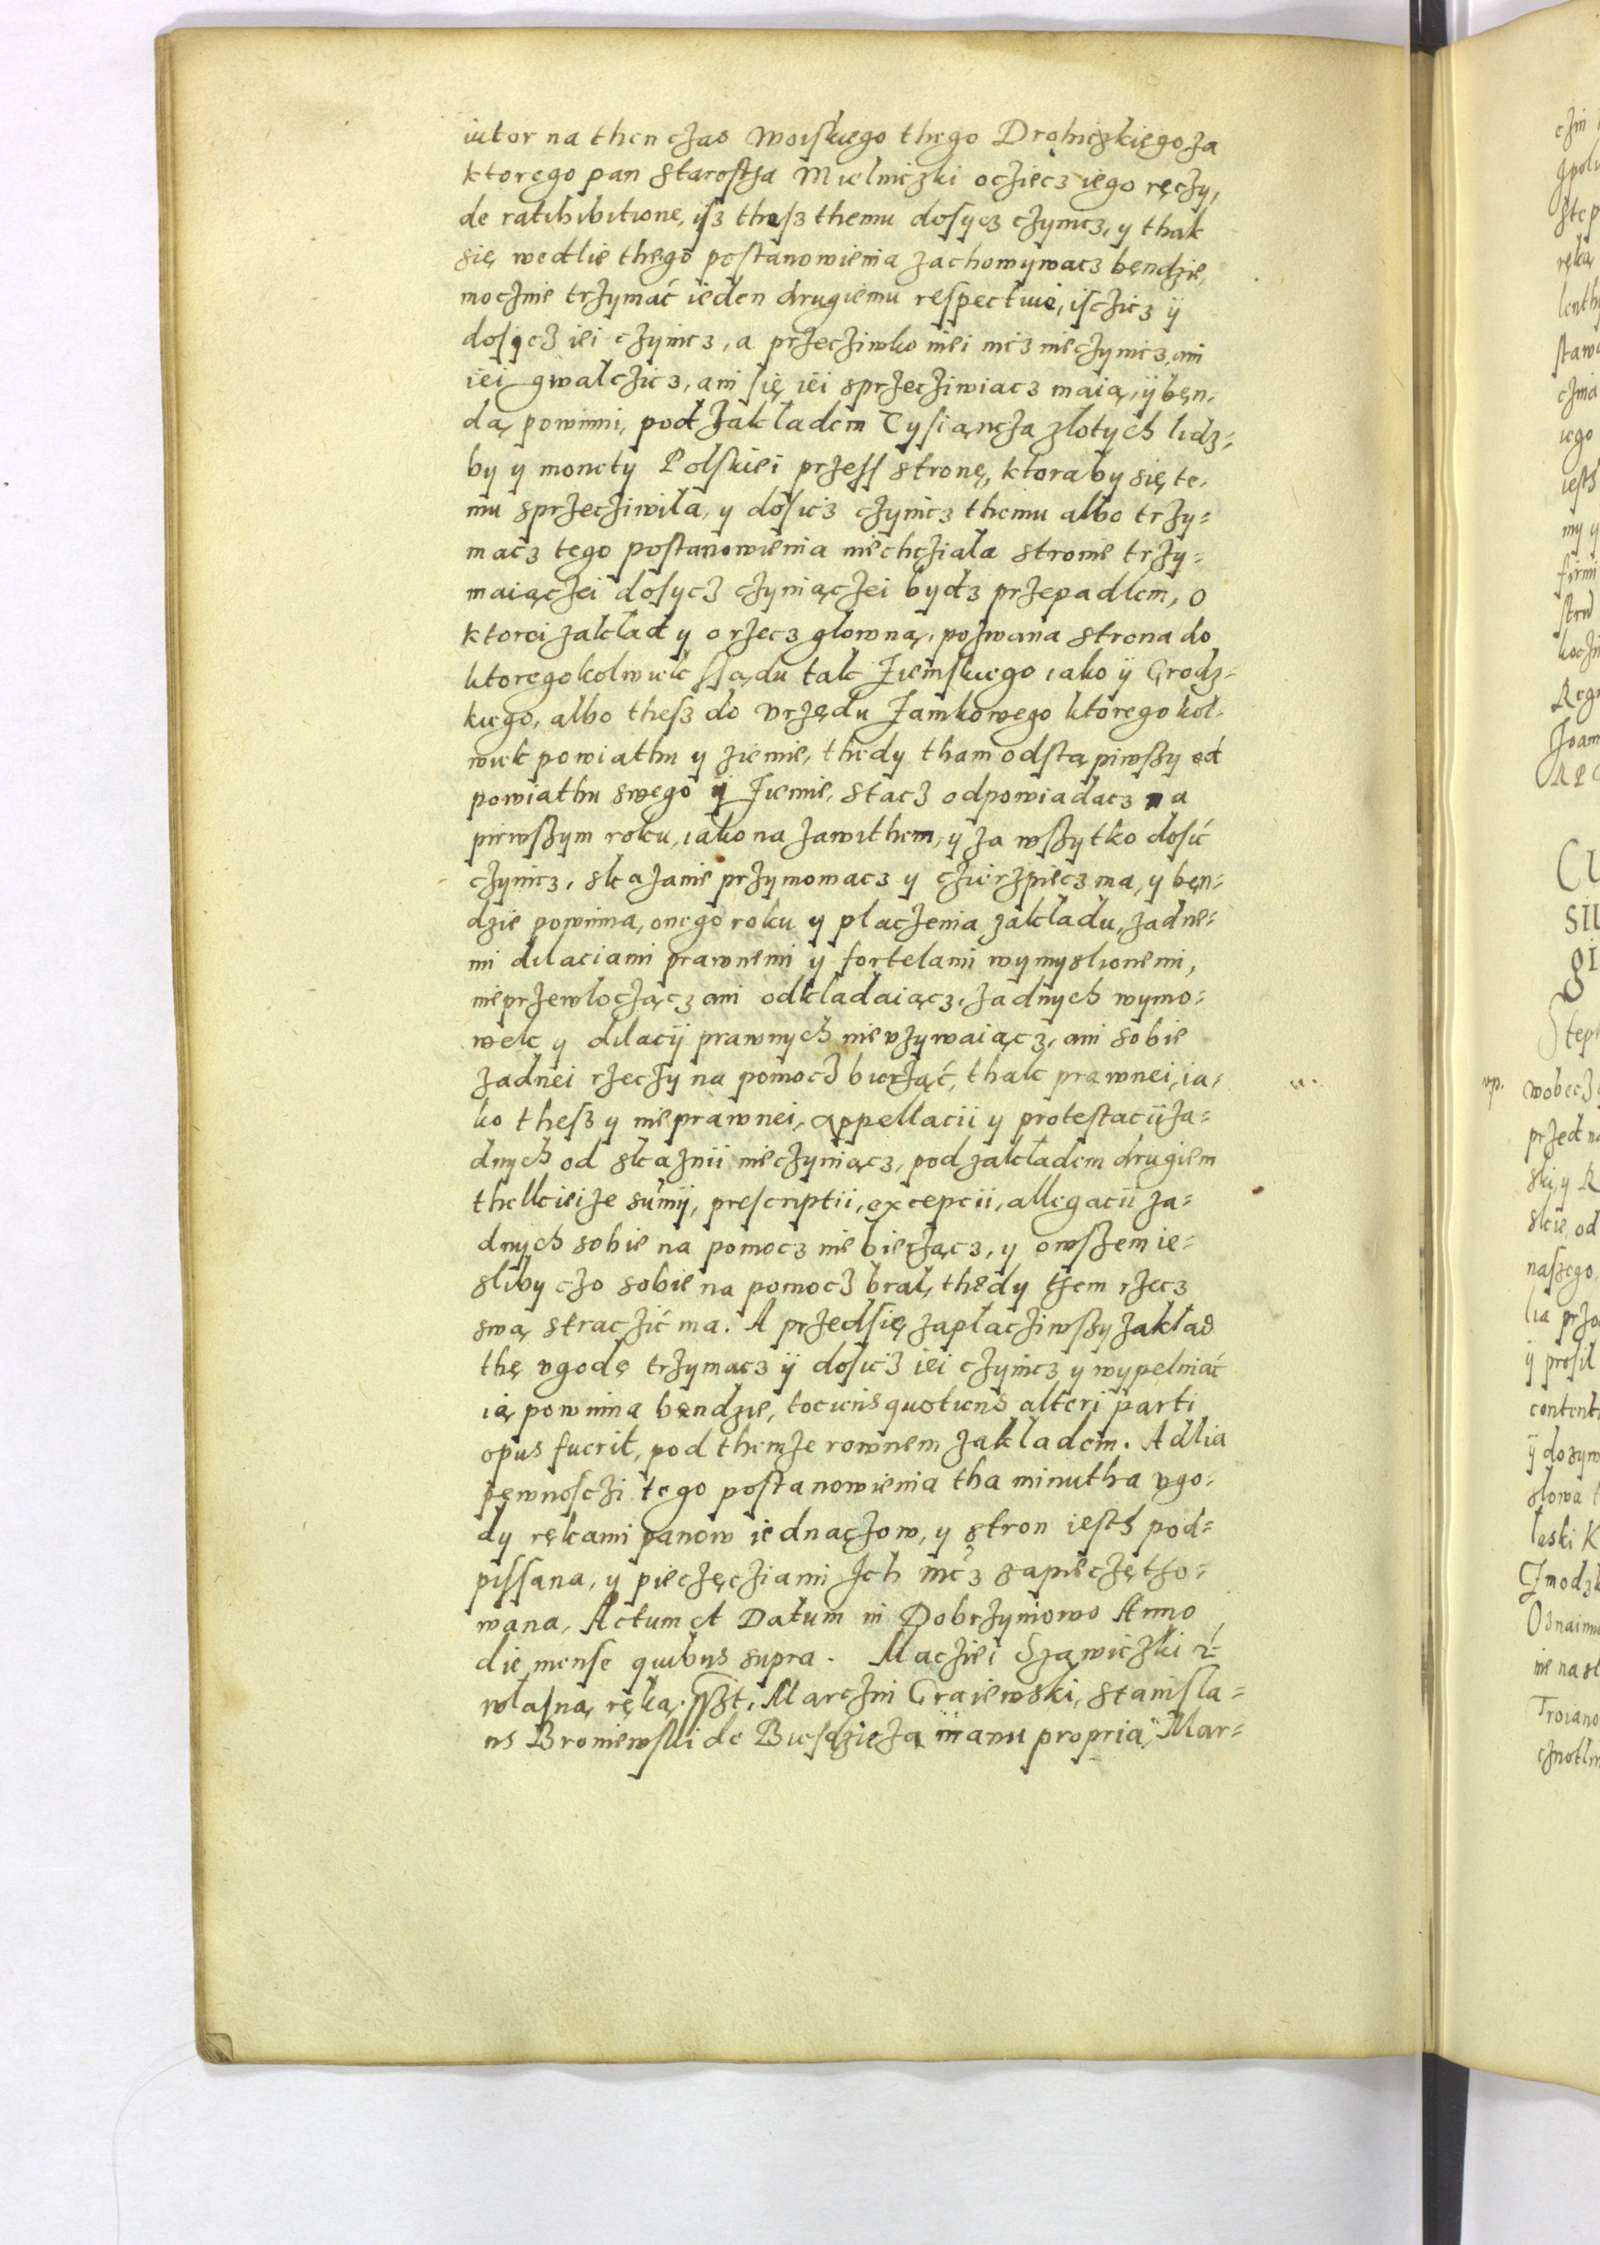 iutor na then czas Woiskiego thego Drohiczkiego za
ktorego pan Starostha Mielniczki ocziecz iego ręczy,
de ratihibitione, isz thesz themu dosycz czynicz, y thak
się wedlie thego postanowienia zachowywacz bendzie,
moczmie trzymać ieden drugiemu respectiuie, isczicz ÿ
dosycz iei czynicz, a przecziwko niei nicz nieczynicz, ani
iei gwalczicz, ani się iei sprzecziwiacz maią, ÿ bęn-
dą powinni, pod zakladem Tysiącza zlotych lidz-
by y monety Polskiei przess stronę, ktoraby się te-
mu sprzecziwila, y dosicz czynicz themu albo trzy-
macz tego postanowienia niechcziala stronie trzy-
maiączei dosycz czyniączei bydz przepadlem, o
ktorei zaklad y o rzecz glowną, pozwana strona do
ktoregokolwiek ssądu tak Ziemskiego iako ÿ Grodz-
kiego, albo thesz do vrzędu Zamkowego ktoregokol-
wiek powiathu y ziemie, thedy tham odstąpiwszy od
powiathu swego ÿ Ziemie, stacz odpowiadacz na
pierwszym roku, iako na zawithem, y za wszytko dosić
czynicz, skazanie przymowacz y czierzpiecz ma, y bęn-
dzie powinna, onego roku y placzenia zakladu, zadne-
mi dilaciami prawnemi y fortelami wymyslionemi,
nieprzewloczącz ani odkladaiącz, zadnych wymo-
wek y dilacÿ prawnych nievzywaiącz, ani sobie
zadnei rzeczy na pomocz bierząć, thak prawnei, ia-
ko thesz y nieprawnei, appellacii y protestacii za-
dnych od skaznii nieczyniącz, pod zakladem drugiem
thellcieize sumÿ, prescriptii, excepcii, allegacii za-
dnych sobie na pomocz nie bierzącz, y owszem ie-
sliby czo sobie na pomocz bral, thedy tzem rzecz
swą straczić ma. A przedsię zaplacziwszy zaklad
thę vgodę trzymacz ÿ dosicz iei czynicz y wypelniać
ią powinna bendzie, tociens quotiens alteri parti
opus fuerit, pod themze rownem zakladem. A dlia
pewnosczi tego postanowienia tha minutha vgo-
dy rękami panow iednaczow, y stron iesth pod-
pissana, y pieczęcziami Ich mcz zapieczętzo-
wana, Actum et Datum in Dobrzyniowo Anno
die mense quibus supra. Macziei Szawiczki
wlasną ręką. Marczin Graiewski, Stanisla-
us Broniewski de Biesdzieza manu propria, Mar-